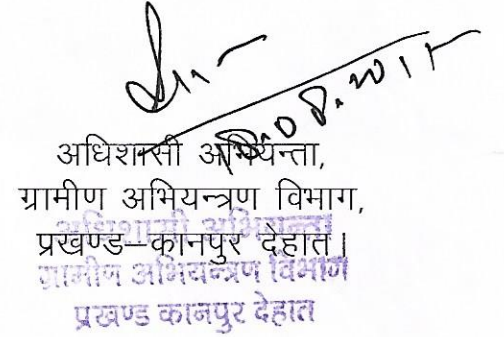 अधिशासी अभियन्ता,
ग्रामीण अभियन्त्रण विभाग,
प्रखण्ड–कानपुर देहात।
अधिशासी अभियन्ता
ग्रामीण अभियन्त्रण विभाग
प्रखण्ड कानपुर देहात